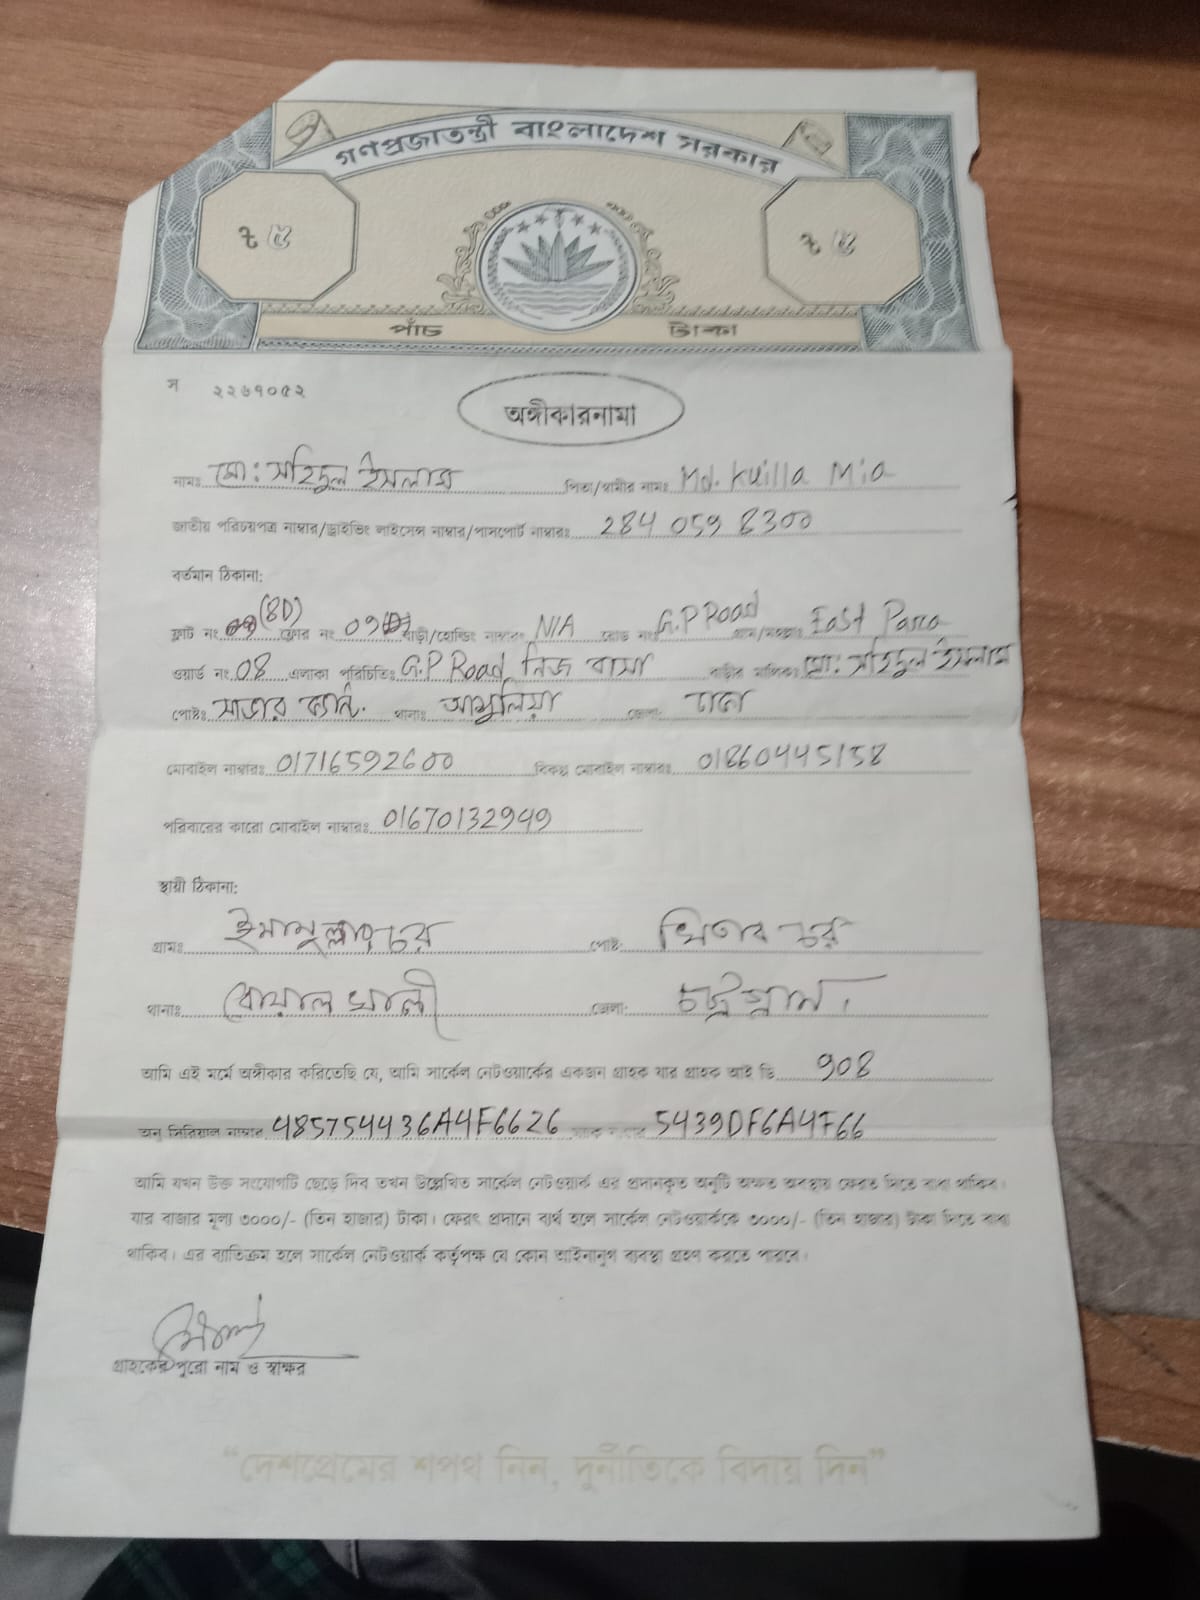 গণপ্রজাতন্ত্রী বাংলাদেশ সরকার
৳ ৫ ৳ ৫
পাঁচ টাকা
স ২২৬৭০৫২
অঙ্গীকারনামা
নামঃ মো: সহিদুল ইসলাম পিতা/স্বামীর নামঃ Md. Kuilla Mia
জাতীয় পরিচয়পত্র নাম্বার/ড্রাইভিং লাইসেন্স নাম্বার/পাসপোর্ট নাম্বারঃ 284 059 8300
বর্তমান ঠিকানা:
ফ্লাট নং (8D) ফ্লোর নং 09 বাড়ী/হোল্ডিং নাম্বারঃ N/A রোড নং G.P Road গ্রাম/মহল্লাঃ East Para
ওয়ার্ড নং 08 এলাকা পরিচিতিঃ G.P Road নিজ বাসা বাড়ীর মালিকঃ মো: সহিদুল ইসলাম
পোষ্টঃ সাভার ক্যান্ট. থানাঃ আশুলিয়া জেলা: ঢাকা
মোবাইল নাম্বারঃ 01716592600 বিকল্প মোবাইল নাম্বারঃ 01860445158
পরিবারের কারো মোবাইল নাম্বারঃ 01670132949
স্থায়ী ঠিকানা:
গ্রামঃ ইমামুল্লার চর পোষ্ট: খিতাব চর
থানাঃ বোয়াল খালী জেলা: চট্টগ্রাম।
আমি এই মর্মে অঙ্গীকার করিতেছি যে, আমি সার্কেল নেটওয়ার্কের একজন গ্রাহক যার গ্রাহক আই ডি 908
অনু সিরিয়াল নাম্বার 485754436A4F6626 ম্যাক নাম্বার 5439DF6A4F66
আমি যখন উক্ত সংযোগটি ছেড়ে দিব তখন উল্লেখিত সার্কেল নেটওয়ার্ক এর প্রদানকৃত অনুটি অক্ষত অবস্থায় ফেরত দিতে বাধ্য থাকিব।
যার বাজার মূল্য ৩০০০/- (তিন হাজার) টাকা। ফেরৎ প্রদানে ব্যর্থ হলে সার্কেল নেটওয়ার্ককে ৩০০০/- (তিন হাজার) টাকা দিতে বাধ্য
থাকিব। এর ব্যাতিক্রম হলে সার্কেল নেটওয়ার্ক কর্তৃপক্ষ যে কোন আইনানুগ ব্যবস্থা গ্রহণ করতে পারবে।
গ্রাহকের পুরো নাম ও স্বাক্ষর
“দেশপ্রেমের শপথ নিন, দুর্নীতিকে বিদায় দিন”